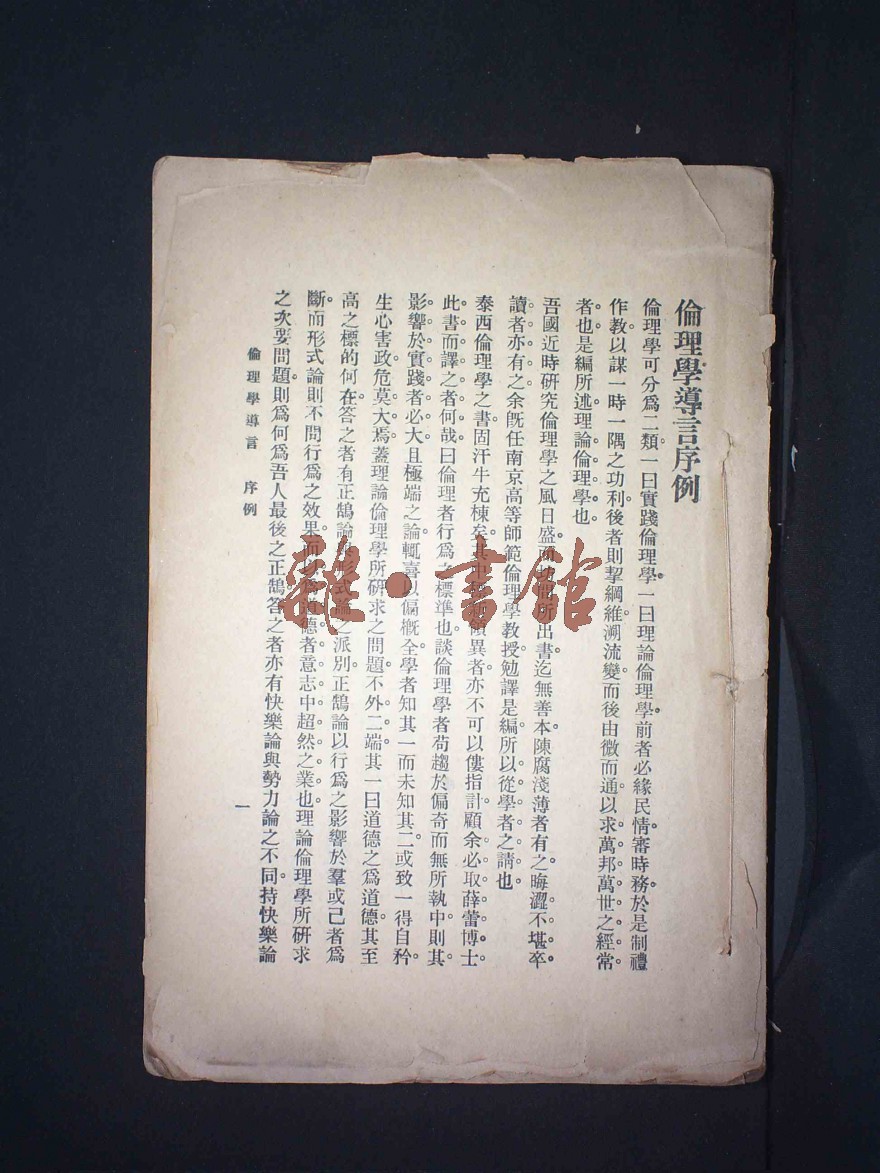 倫理學導言序例
倫理學可分爲二類一曰實踐倫理學。一曰理論倫理學。前者必緣民情。審時務。於是制禮
作教。以謀一時一隅之功利。後者則挈綱維。溯流變。而後由微而通。以求萬邦萬世之經常
者也。是編所述。理論倫理學也。
吾國近時研究倫理學之風日盛。而坊間所出書。迄無善本。陳腐淺薄者有之。晦澀不堪卒
讀者亦有之。余旣任南京高等師範倫理學教授。勉譯是編。所以從學者之請也。
泰西倫理學之書。固汗牛充棟矣。其中領異者。亦不可以僂指計。顧余必取薛蕾博士
此書而譯之者何哉。曰倫理者行爲之標準也。談倫理學者。苟趨於偏奇而無所執中。則其
影響於實踐者必大。且極端之論。輒喜以偏概全。學者知其一而未知其二。或致一得自矜。
生心害政。危莫大焉。蓋理論倫理學所研求之問題。不外二端。其一曰道德之爲道德。其至
高之標的何在。答之者有正鵠論與形式論之派別。正鵠論以行爲之影響於羣或己者爲
斷。而形式論則不問行爲之效果。而以爲道德者意志中超然之業也。理論倫理學所研求
之次要問題。則爲何爲吾人最後之正鵠。答之者亦有快樂論與勢力論之不同。持快樂論
倫理學導言 序例
一
雜·書館